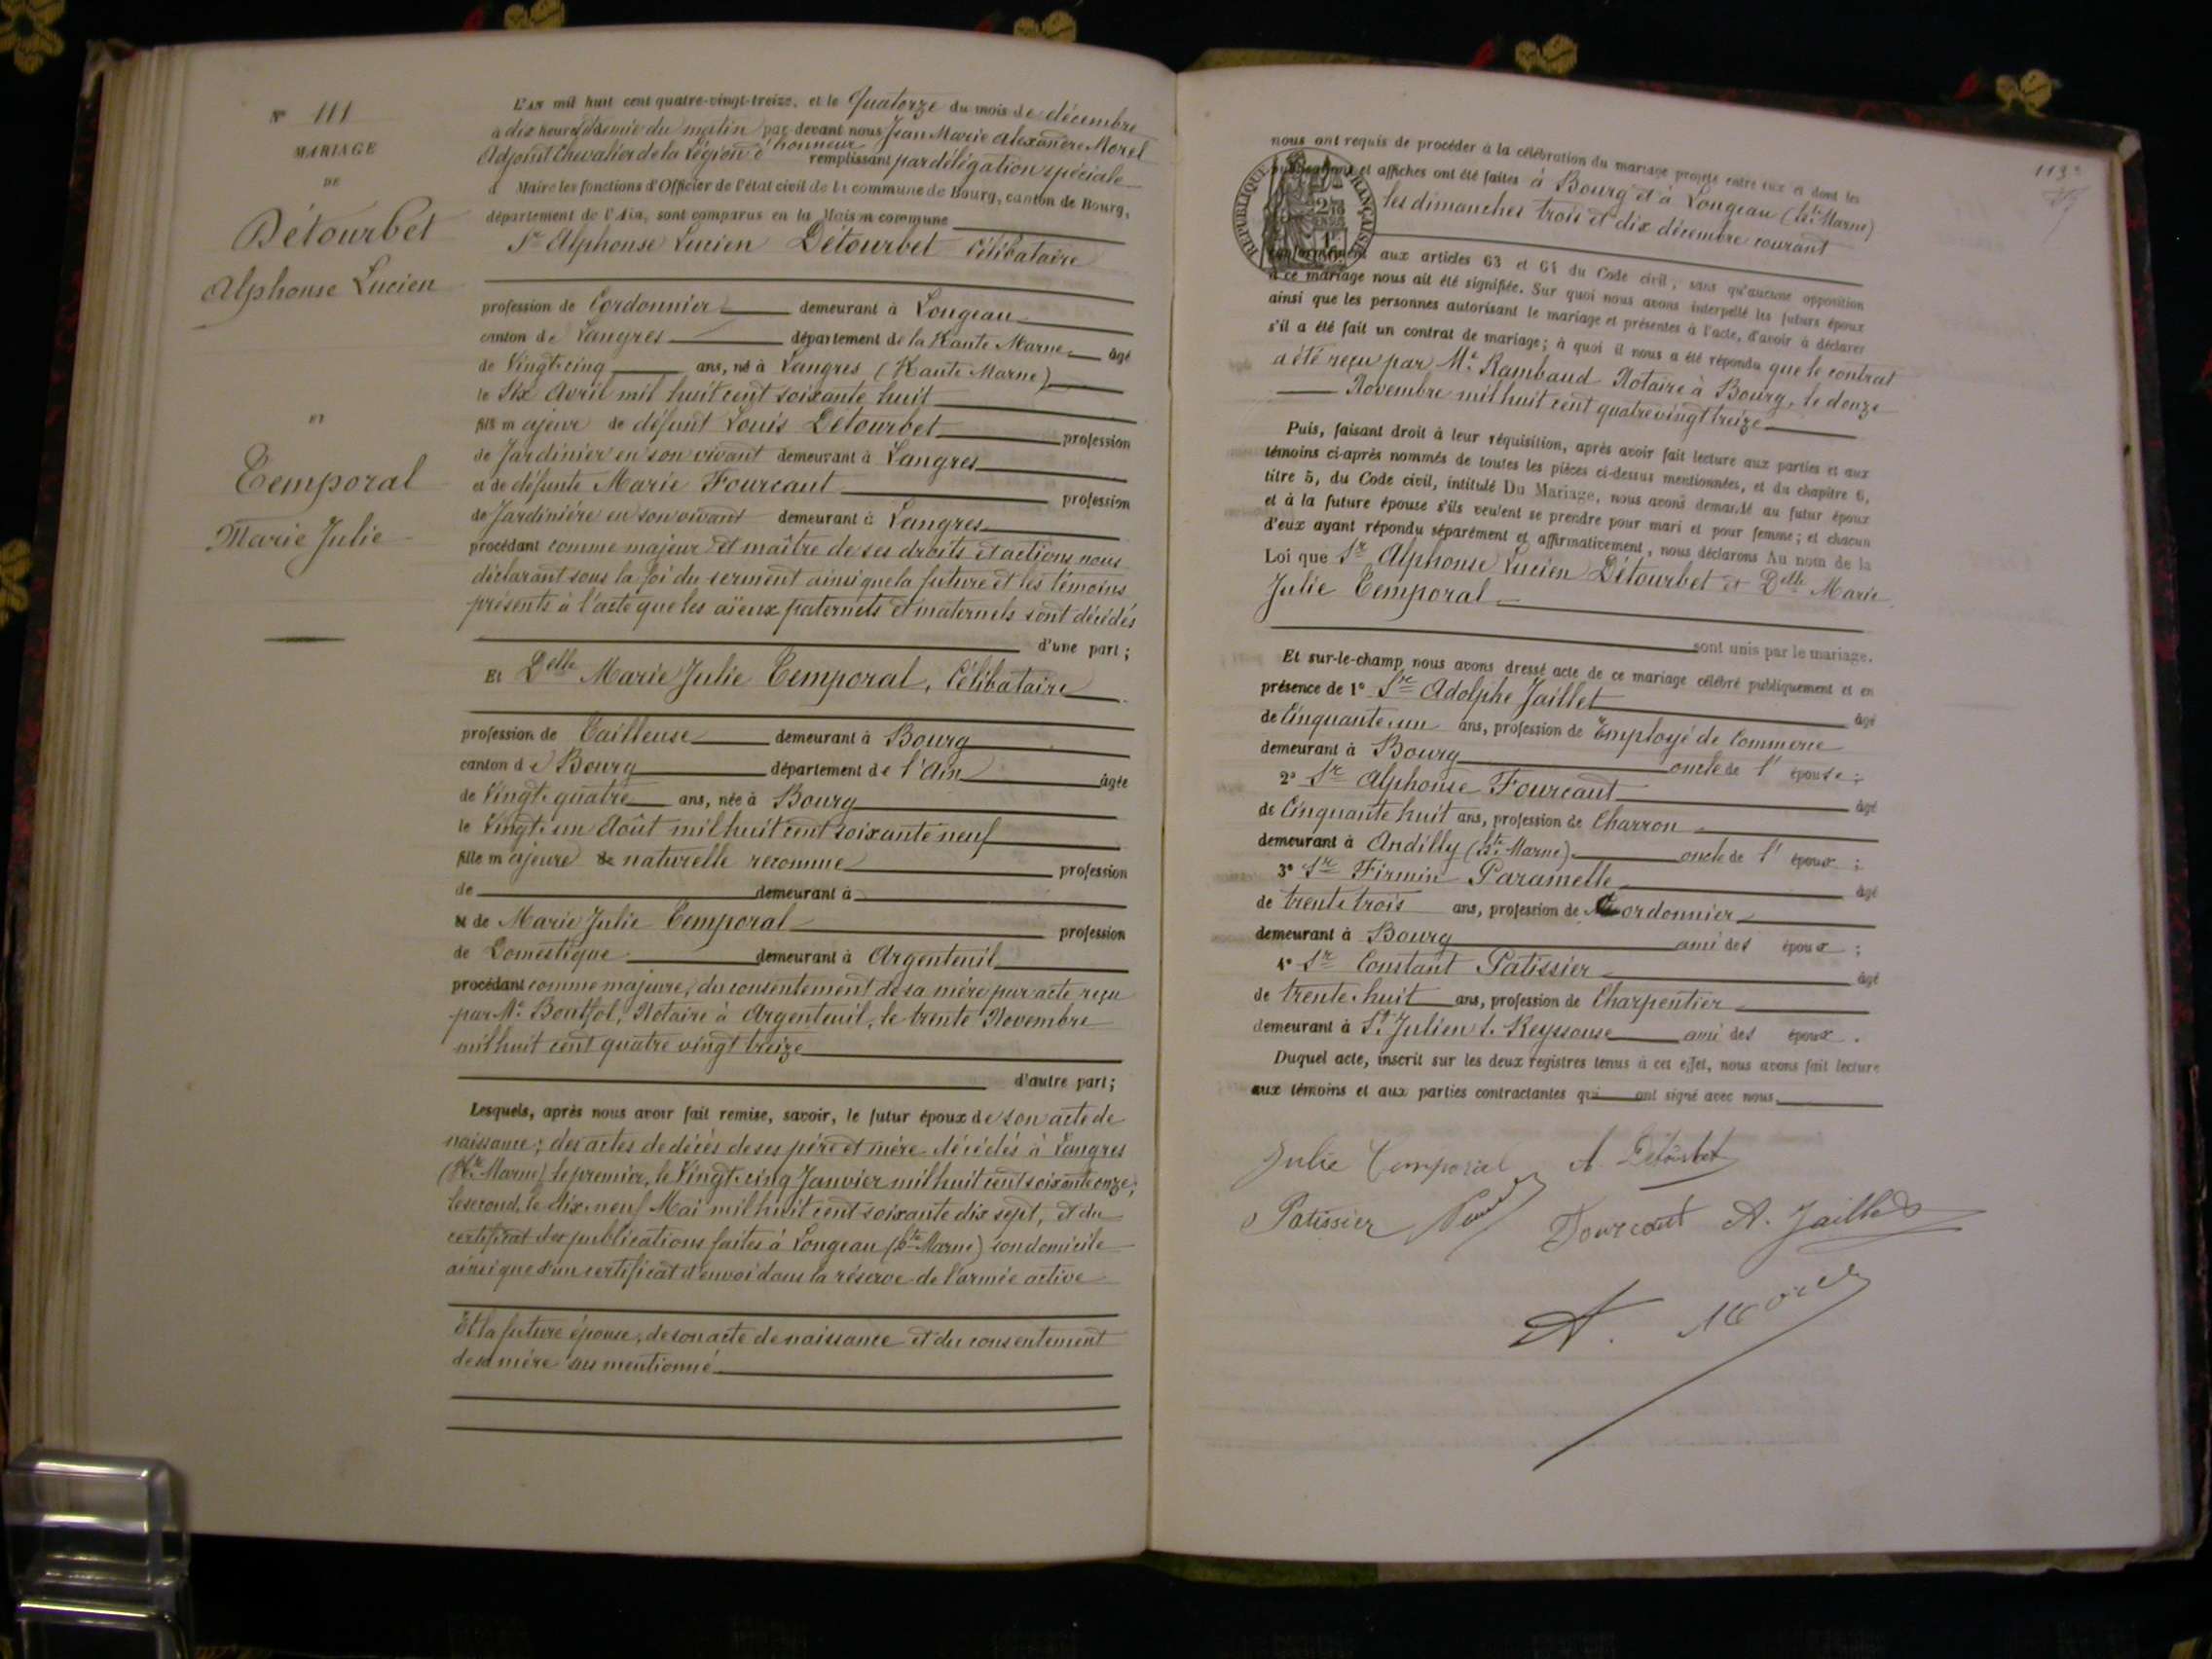 N° 111
MARIAGE
DE
Détourbet
Alphonse Lucien
ET
Temporal
Marie Julie
L'AN mil huit cent quatre-vingt-treize, et le Quatorze du mois de décembre
à dix heures & demie du matin par devant nous Jean Marie Alexandre Morel
Adjoint Chevalier de la Légion d'honneur remplissant par délégation spéciale
d Maire les fonctions d'Officier de l'état civil de la commune de Bourg, canton de Bourg,
département de l'Ain, sont comparus en la Maison commune
Sr Alphonse Lucien Détourbet Célibataire
profession de Cordonnier demeurant à Longeau
canton de Langres département de la Haute Marne âgé
de Vingt-cinq ans, né à Langres (Haute Marne)
le Six Avril mil huit cent soixante huit
fils majeur de défunt Louis Détourbet profession
de Jardinier en son vivant demeurant à Langres
et de défunte Marie Fourcaut profession
de Jardinière en son vivant demeurant à Langres
procédant comme majeur et maître de ses droits et actions nous
déclarant sous la foi du serment ainsi que la future et les témoins
présents à l'acte que les aïeux paternels et maternels sont décédés
d'une part ;
Et Delle Marie Julie Temporal, Célibataire
profession de Tailleuse demeurant à Bourg
canton de Bourg département de l'Ain âgée
de Vingt-quatre ans, née à Bourg
le Vingt-un Août mil huit cent soixante neuf
fille majeure de naturelle reconnue profession
de demeurant à
et de Marie Julie Temporal profession
de Domestique demeurant à Argenteuil
procédant comme majeure, du consentement de sa mère par acte reçu
par Me Notaire à Argenteuil, le trente Novembre
mil huit cent quatre vingt treize
d'autre part ;
Lesquels, après nous avoir fait remise, savoir, le futur époux de son acte de
naissance ; des actes de décès de ses père et mère décédés à Langres
(Hte Marne) le premier, le Vingt-cinq Janvier mil huit cent soixante onze,
le second, le dix-neuf Mai mil huit cent soixante dix sept, et du
certificat des publications faites à Longeau (Hte Marne) son domicile
ainsi que d'un certificat d'envoi dans la réserve de l'armée active
Et la future épouse, de son acte de naissance et du consentement
de sa mère sus mentionné
113e
nous ont requis de procéder à la célébration du mariage projeté entre eux et dont les
publications et affiches ont été faites à Bourg et à Longeau (Hte Marne)
les dimanches trois et dix décembre courant
RÉPUBLIQUE FRANÇAISE
conformément aux articles 63 et 64 du Code civil, sans qu'aucune opposition
à ce mariage nous ait été signifiée. Sur quoi nous avons interpellé les futurs époux
ainsi que les personnes autorisant le mariage et présentes à l'acte, d'avoir à déclarer
s'il a été fait un contrat de mariage ; à quoi il nous a été répondu que le contrat
a été reçu par Me Rambaud Notaire à Bourg, le douze
Novembre mil huit cent quatre vingt treize
Puis, faisant droit à leur réquisition, après avoir fait lecture aux parties et aux
témoins ci-après nommés de toutes les pièces ci-dessus mentionnées, et du chapitre 6,
titre 5, du Code civil, intitulé Du Mariage, nous avons demandé au futur époux
et à la future épouse s'ils veulent se prendre pour mari et pour femme ; et chacun
d'eux ayant répondu séparément et affirmativement, nous déclarons Au nom de la
Loi que Sr Alphonse Lucien Détourbet et Delle Marie
Julie Temporal
sont unis par le mariage.
Et sur-le-champ nous avons dressé acte de ce mariage célébré publiquement et en
présence de 1° Sr Adolphe Jaillet âgé
de Cinquante-un ans, profession de Employé de Commerce
demeurant à Bourg oncle de l'épouse ;
2° Sr Alphonse Fourcaut âgé
de Cinquante huit ans, profession de Charron
demeurant à Andilly (Hte Marne) oncle de l'époux ;
3° Sr Firmin Paramelle âgé
de trente trois ans, profession de Cordonnier
demeurant à Bourg ami des époux ;
4° Sr Constant Patissier âgé
de trente-huit ans, profession de Charpentier
demeurant à St Julien s. Reyssouse ami des époux.
Duquel acte, inscrit sur les deux registres tenus à cet effet, nous avons fait lecture
aux témoins et aux parties contractantes qui ont signé avec nous.
Julie Temporal A. Détourbet
Patissier Fourcaut A. Jaillet
A. Morel